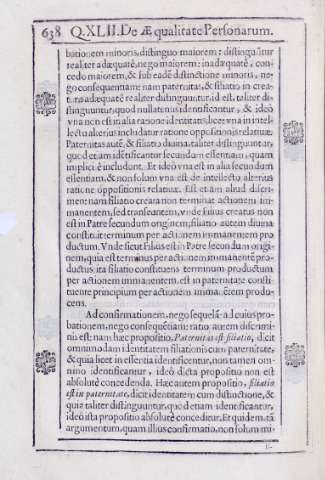 638 Q.XLII. De Æqualitate Personarum.
bationem minoris, distinguo maiorem: distinguũtur
realiter adæquatè, nego maiorem: inadæquatè, con-
cedo maiorem, & sub eadē distinctione minoris, ne-
go consequentiam: nam paternitas, & filiatio in crea-
tura adæquatè realiter distinguuntur, id est, taliter di-
stinguuntur, quod nullatenus identificantur, & ideò
vna non est in alia ratione identitatis, licet vna in intel-
lectu alterius includatur ratione oppositionis relatiuæ.
Paternitas autē, & filiatio diuina, taliter distinguuntur,
quod etiam idētificantur secundum essentiam, quam
implicitè includunt. Et ideò vna est in alia secundum
essentiam, & non solum vna est de intellectu alterius
ratione oppositionis relatiuæ. Est etiam aliud discri-
men: nam filiatio creata non terminat actionem im-
manentem, sed transeuntem, vnde filius creatus non
est in Patre secundum originem, filiatio autem diuina
constituit terminum per actionem immanentem pro
ductum. Vnde sicut Filius est in Patre secundum origi-
nem, quia est terminus per actionem immanentē pro-
ductus: ita filiatio constituens terminum productum
per actionem immanentem, est in paternitate consti-
tuente principium per actionem immanentem produ-
cens.
Ad confirmationem, nego sequelā: ad cuius pro-
bationem, nego consequētiam: ratio autem discrimi-
nis est: nam hæc propositio, Paternitas est filiatio, dicit
omnimodam identitatem filiationis cum paternitate,
& quia licet in essentia identificentur, non tamen om-
nino identificantur, ideò dicta propositio non est
absolutè concedenda. Hæc autem propositio, filiatio
est in paternitate, dicit identitatem cum distinctione, &
quia taliter distinguuntur, quod etiam identificantur,
ideò ista propositio absolutè conceditur. Et quidem, tā
argumentum, quam illius confirmatio, non solum mi-